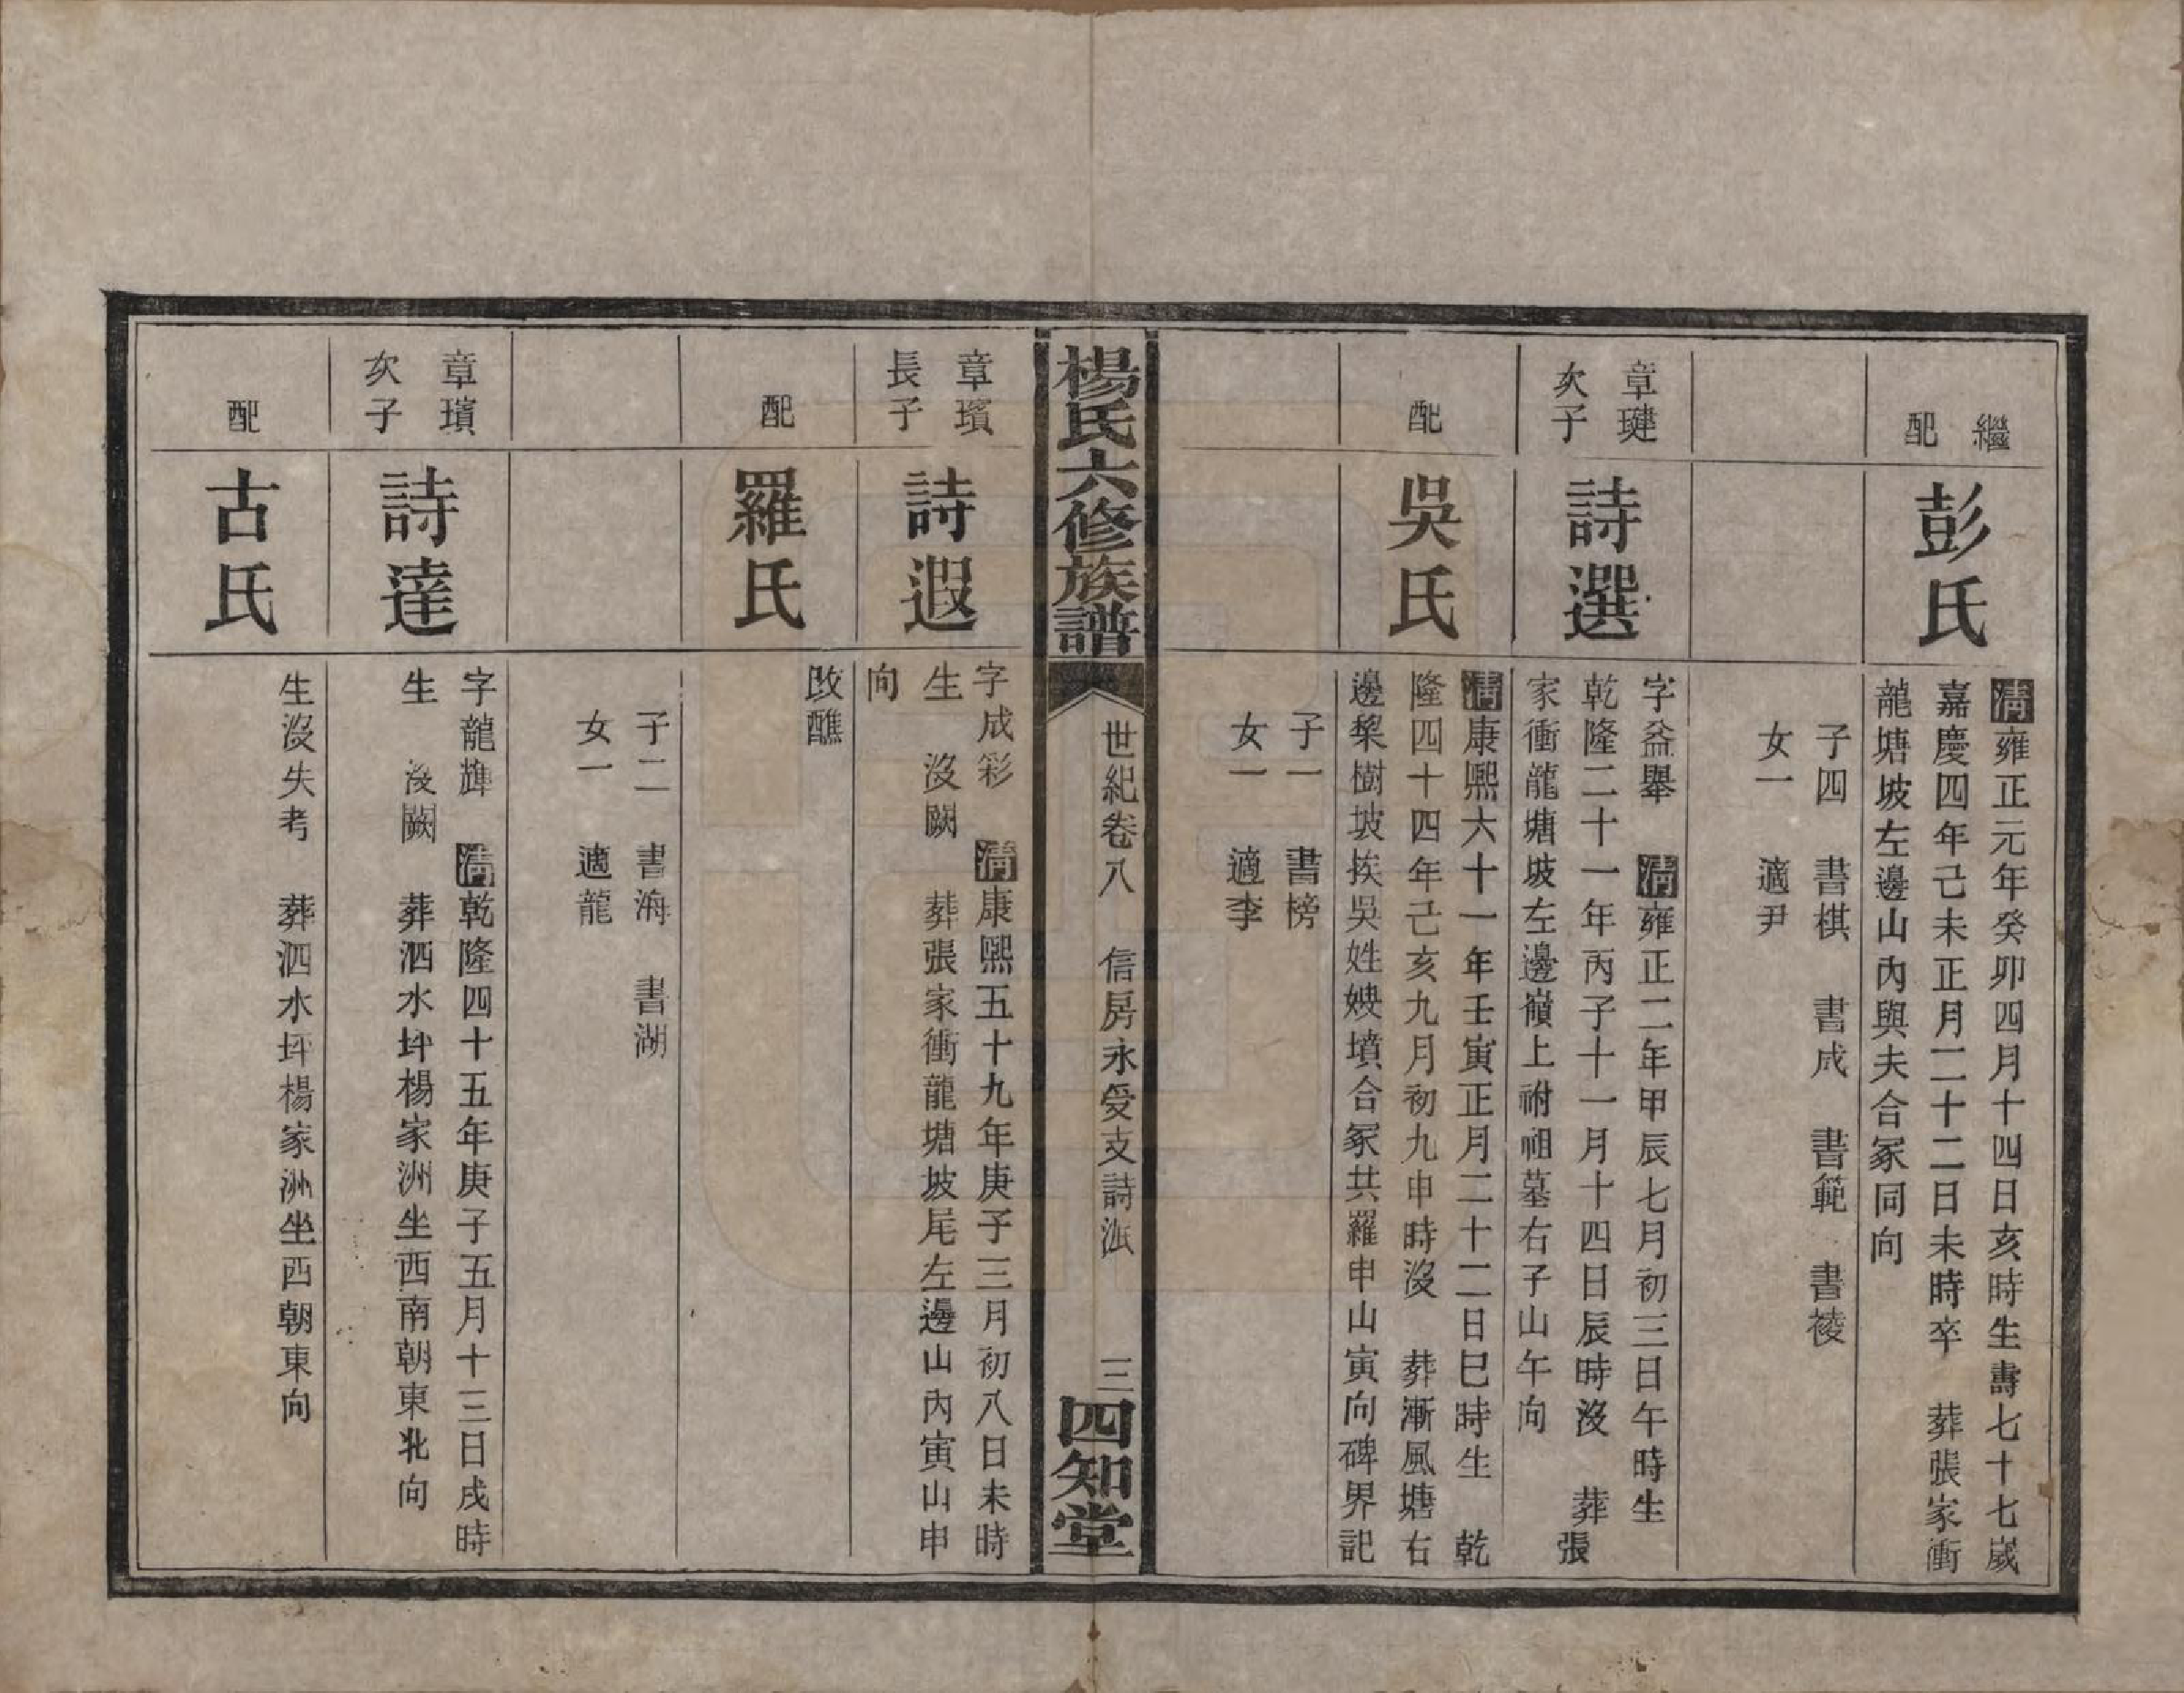 繼
配
彭氏
清雍正元年癸卯四月十四日亥時生壽七十七歲
嘉慶四年己未正月二十二日未時卒 葬張家衝
龍塘坡左邊山內與夫合冢同向
子四 書棋 書成 書範 書稜
女一 適尹
章琎
次子
詩選
字益舉 清雍正二年甲辰七月初三日午時生
乾隆二十一年丙子十一月十四日辰時沒 葬張
家衝龍塘坡左邊嶺上祔祖墓右子山午向
配
吳氏
清康熙六十一年壬寅正月二十二日巳時生 乾
隆四十四年己亥九月初九申時沒 葬漸風塘右
邊棃樹坡挨吳姓媖墳合冢共羅申山寅向碑界記
子一 書榜
女一 適李
楊氏六修族譜
世紀卷八 信房永受支詩派
三
四知堂
章璸
長子
詩遐
字成彩 清康熙五十九年庚子三月初八日未時
生 沒闕 葬張家衝龍塘坡尾左邊山內寅山申
向
配
羅氏
改醮
子二 書海 書湖
女一 適龍
章璸
次子
詩達
字龍驊 清乾隆四十五年庚子五月十三日戌時
生 沒闕 葬泗水坪楊家洲坐西南朝東北向
配
古氏
生沒失考 葬泗水坪楊家洲坐西朝東向